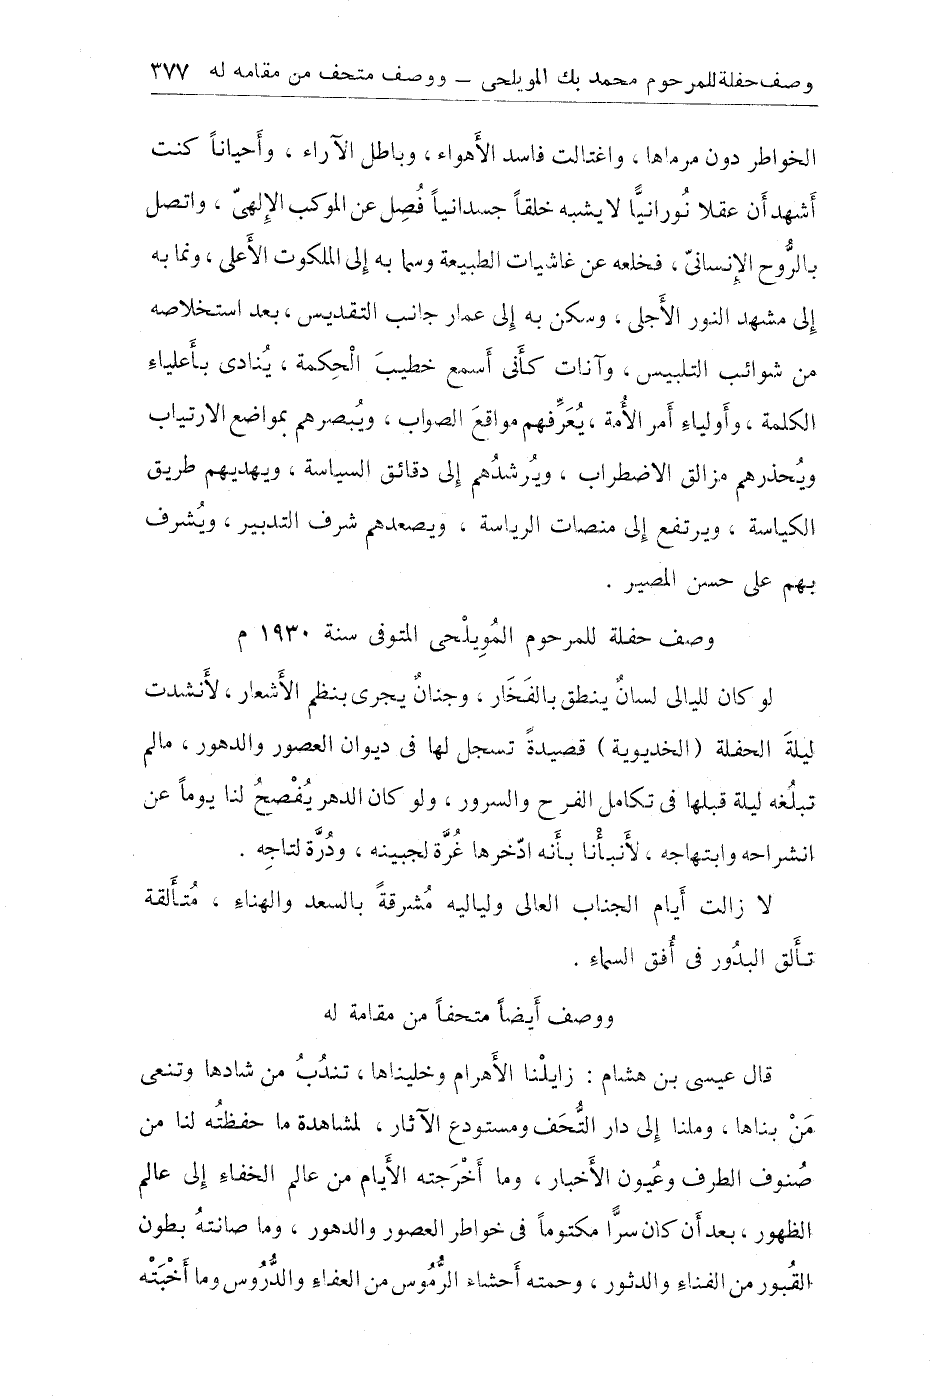 وصف حفلة للمرحوم محمد بك المويلحى – ووصف متحف من مقامه له ٣٧٧
الخواطر دون مرماها ، واغتالت فاسد الأهواء ، وباطل الآراء ، وأحياناً كنت
أشهد أن عقلا نُورانيًّا لا يشبه خلقاً جسدانياً فُصِل عن الموكب الإلهىّ ، واتصل
بالرُّوح الإنسانىّ ، فخلعه عن غاشيات الطبيعة وسما به إلى الملكوت الأعلى ، ونما به
إلى مشهد النور الأجلى ، وسكن به إلى عمار جانب التقديس ، بعد استخلاصه
من شوائب التلبيس ، وآنات كأنى أسمع خطيبَ الْحِكمة ، يُنادى بأعلياء
الكلمة ، وأولياء أمر الأُمة ، يُعَرِّفهم مواقعَ الصواب ، ويُبصرهم بمواضع الارتياب
ويُحذرهم مزالق الاضطراب ، ويُرشدُهم إلى دقائق السياسة ، ويهديهم طريق
الكياسة ، ويرتفع إلى منصات الرياسة ، ويصعدهم شرف التدبير ، ويُشرف
بهم على حسن المصير .
وصف حفلة للمرحوم المُوِيلْحى المتوفى سنة ١٩٣٠ م
لو كان لليالى لسانٌ ينطق بالفَخَار ، وجنانٌ يجرى بنظم الأشعار ، لأنشدت
ليلةَ الحفلة ( الخديوية ) قصيدةً تسجل لها فى ديوان العصور والدهور ، مالم
تبلُغه ليلة قبلها فى تكامل الفرح والسرور ، ولو كان الدهر يُفْصحُ لنا يوماً عن
انشراحه وابتهاجه ، لأنبأْنا بأنه ادّخرها غُرَّة لجبينه ، ودُرَّة لتاجِه .
لا زالت أيام الجناب العالى ولياليه مُشرقةً بالسعد والهناء ، مُتألقة
تألق البدُور فى أُفق السماء .
ووصف أيضاً متحفاً من مقامة له
قال عيسى بن هشام : زايلْنا الأهرام وخليناها ، تندُبُ من شادها وتنعى
مَنْ بناها ، وملنا إلى دار التُّحَف ومستودع الآثار ، لمشاهدة ما حفظتُه لنا من
صُنوف الطرف وعُيون الأخبار ، وما أخْرَجته الأيام من عالم الخفاء إلى عالم
الظهور ، بعد أن كان سرًّا مكتوماً فى خواطر العصور والدهور ، وما صانتهُ بطون
القُبور من الفناء والدثور ، وحمته أحشاء الرُّمُوس من العفاء والدُّرُوس وما أخْبَتْه